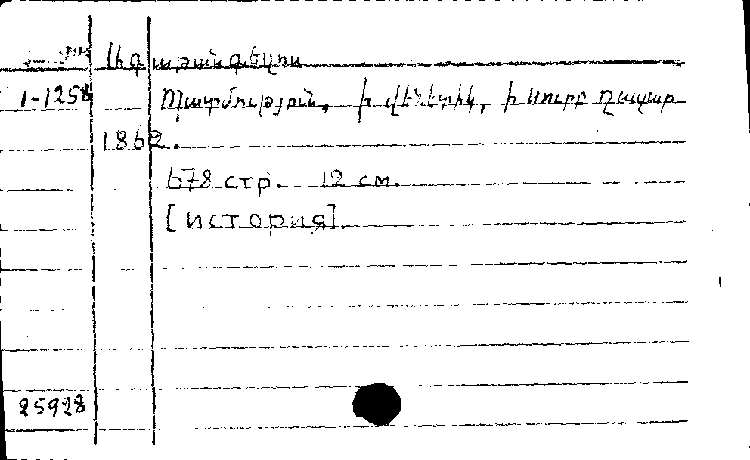 Ագաթանգեղոս
1-1258 Պատմություն, ի վենետիկ, ի սուրբ Ղազար
1862.
678 стр. 12 см.
[история]
25928